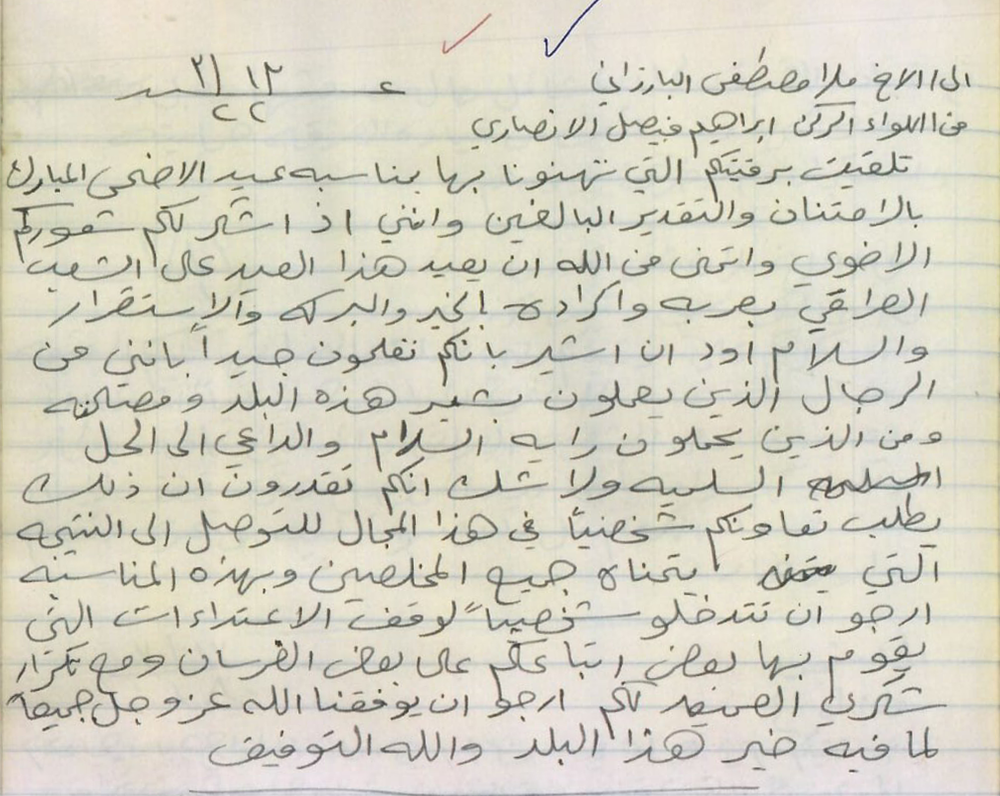 الى الاخ ملا مصطفى البارزاني
٢١ ١٢
٢٢
من اللواء الركن ابراهيم فيصل الانصاري
تلقيت برقيتكم التي تهنونا بها بمناسبه عيد الاضحى المبارك
بالامتنان والتقدير البالغين وانني اذ اشكر لكم شعوركم
الاخوي واتمنى من الله ان يعيد هذا العيد على الشعب
العراقي بعربه واكراده بالخير والبركه والاستقرار
والسلام اود ان اشير بانكم تعلمون جيداً بانني من
الرجال الذين يعملون بشعب هذه البلد ومصلحته
ومن الذين يحملون رايه السلام والداعي الى الحل
السلميه ولا شك انكم تقدرون ان ذلك
يطلب تعاونكم شخصياً في هذا المجال للتوصل الى النتيجه
التي يتمناه جميع المخلصين وبهذه المناسبه
ارجو ان تتدخلو شخصياً لوقف الاعتداءات التي
يقوم بها بعض اتباعكم على بعض الفرسان ومع تكرار
شكري العميق لكم ارجو ان يوفقنا الله عز وجل جميعا
لما فيه خير هذا البلد والله التوفيق